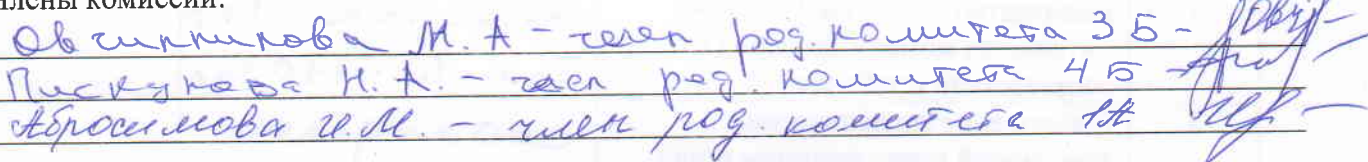 члены комиссии:
Овчинникова М. А - член род. комитета 3 Б -
Пискунова Н. А. - член род. комитета 4 Б -
Абросимова И.М. - член род. комитета 1А